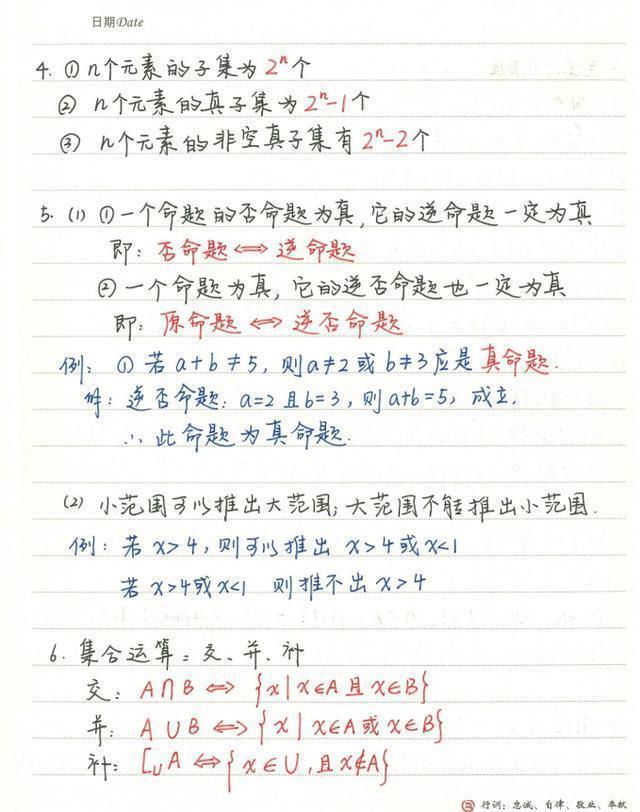 日期Date
4. ①n个元素的子集为2ⁿ个
② n个元素的真子集为2ⁿ-1个
③ n个元素的非空真子集有2ⁿ-2个
5. (1) ①一个命题的否命题为真,它的逆命题一定为真
即: 否命题⟺逆命题
②一个命题为真,它的逆否命题也一定为真
即: 原命题⟺逆否命题
例: ①若a+b≠5, 则a≠2或b≠3应是真命题.
解: 逆否命题: a=2且b=3, 则a+b=5, 成立.
∴此命题为真命题.
(2) 小范围可以推出大范围; 大范围不能推出小范围.
例: 若x>4, 则可以推出 x>4或x<1
若x>4或x<1 则推不出x>4
6. 集合运算: 交、并、补
交: A∩B⟺{x|x∈A且x∈B}
并: A∪B⟺{x|x∈A或x∈B}
补: [ᵤA⟺{x∈U,且x∉A}
行训: 忠诚、自律、敬业、奉献